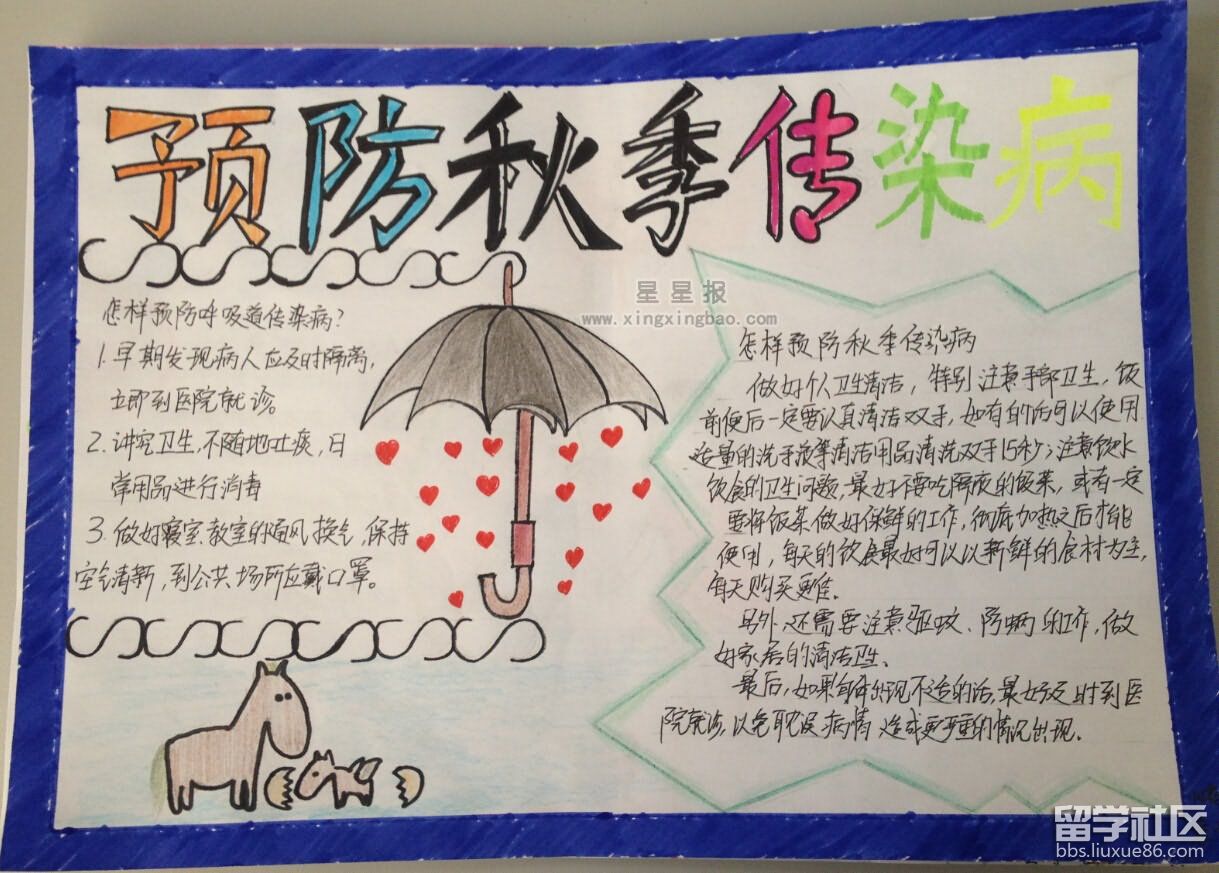 预防秋季传染病
星星报
www.xingxingbao.com
怎样预防呼吸道传染病?
1.早期发现病人应及时隔离,
立即到医院就诊。
2.讲究卫生,不随地吐痰,日
常用品进行消毒
3.做好寝室.教室的通风换气,保持
空气清新,到公共场所应戴口罩。
怎样预防秋季传染病
做好个人卫生清洁,特别注意手部卫生,饭
前便后一定要认真清洁双手,如有的话可以使用
适量的洗手液等清洁用品清洗双手15秒;注意饮水
饮食的卫生问题,最好不要吃隔夜的饭菜,或有一定
要将饭菜做好保鲜的工作,彻底加热之后才能
使用,每天的饮食最好可以以新鲜的食材为主,
每天购买更佳。
另外,还需要注意驱蚊、防蝇的工作,做
好家居的清洁卫生、
最后,如果自体出现不适的话,最好及时到医
院就诊,以免耽误病情造成更严重的情况出现.
留学社区
bbs.liuxue86.com